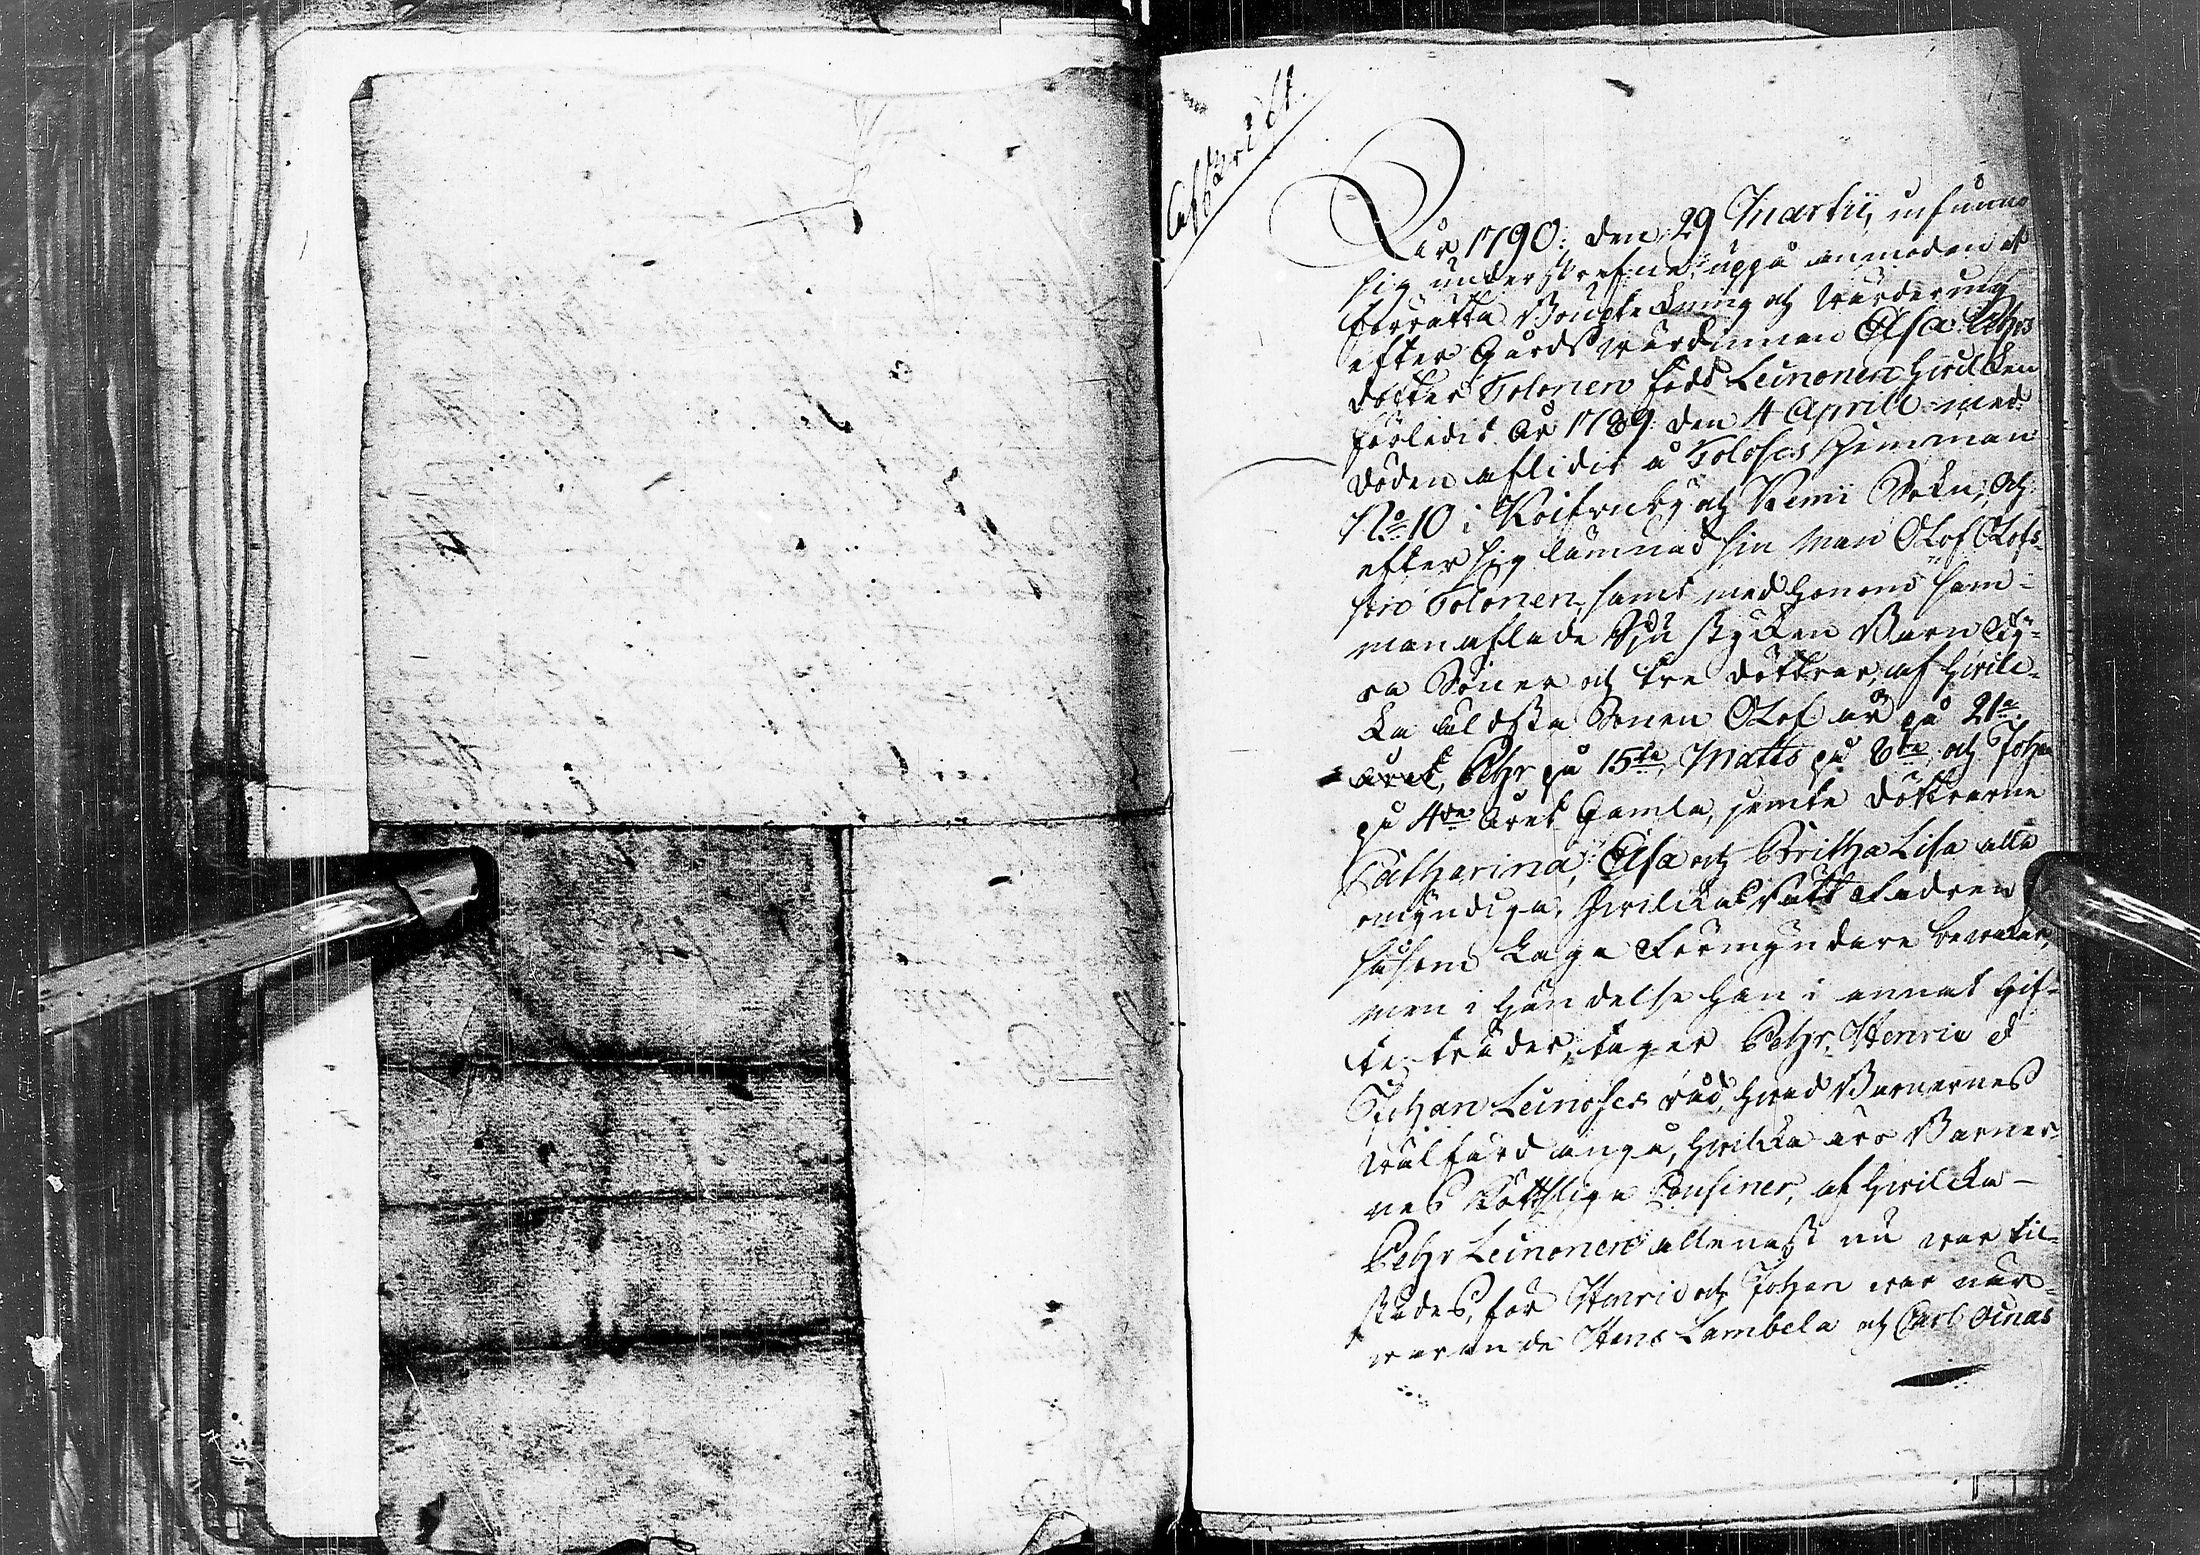 Afskrift.
År 1790: den 29 Martii, infunno
sig underskrefne, uppå anmodan at
förrätta Boupteckning och Wärdering
efter Gårds wärdinnan Elsa Pehrs
dotter Tolonen född Leinonen hvilcken
förledit år 1789 den 4 Aprill med
döden aflidit å Toloses Hemman
No 10 i Koifvuby och Kemi Sokn, och
efter sig lämnad sin Man Olof Olofs-
son Tolonen, samt med honom sam-
manaflade Sju stycken Barn Fy-
ra Söner och tre döttrar, af hvile-
ka äldsta Sonen Olof är på 21a
året, Pehr på 15te, Matts på 8de och Johan
på 4de året Gamla, jemte döttrarne
Catharina, Elsa och Britha Lisa alla
omyndiga, hvilckas rätt Fadren
såsom Laga Förmyndare bevakar,
men i händelse han i annat Gif-
te träder, tager Pehr, Henric et
Johan Leinoses råd, hvad Barnernes
wälfärd angå, hvilcka äro Barner-
nes Köttslige Cousiner, af hvilcka
Pehr Leinonen allenast nu var til-
städes, för Henric och Johan var när-
varande Hans Lambela och Carl Ocnas